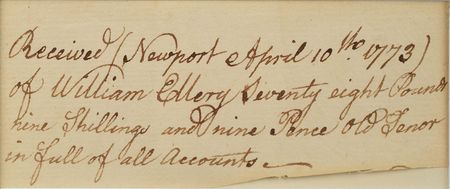 Received (Newport April 10th. 1773)
of William Ellery Seventy eight Pounds
nine Shillings and nine Pence Old Tenor
in full of all Accounts